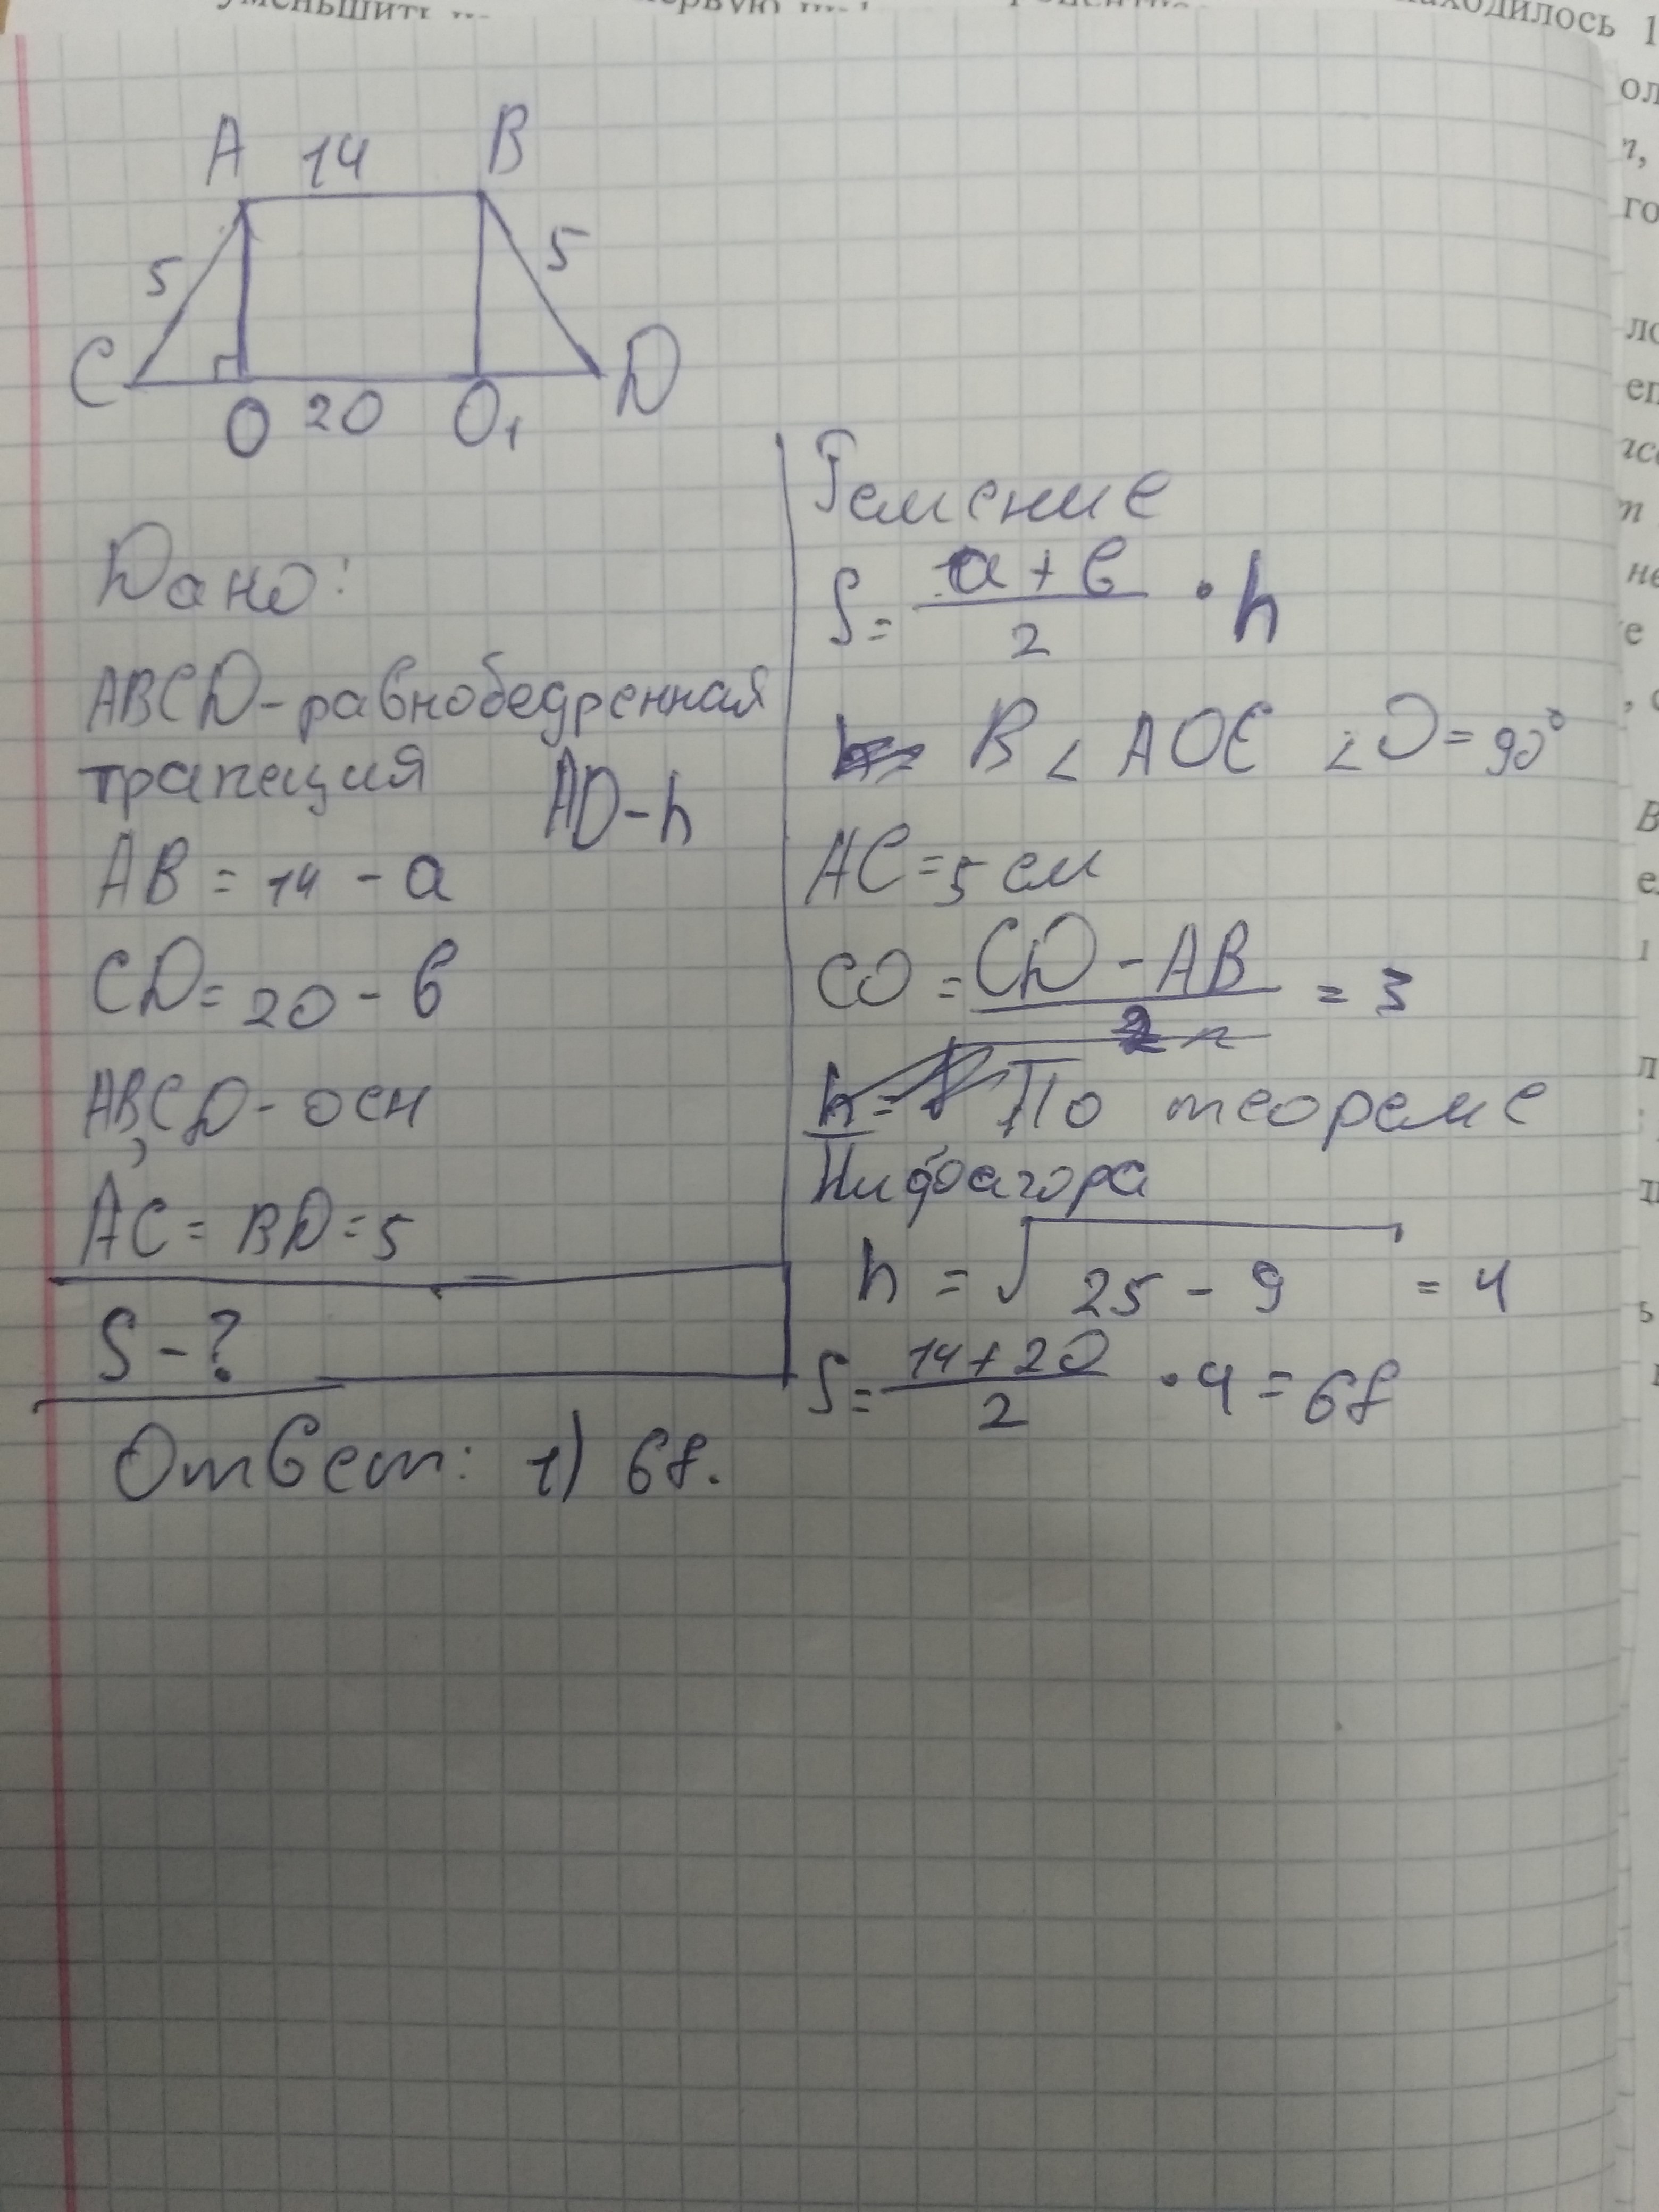 уменьшить
находилось 1
A 14 B
5 5
C D
O 20 O₁
Дано:
ABCD - равнобедренная
трапеция AO - h
AB = 14 - a
CD = 20 - b
AB, CD - осн
AC = BD = 5
S - ?
Ответ: 1) 68.
Решение
S = (a + b)/2 · h
В < AOC ∠O = 90°
AC = 5 см
CO = (CD - AB)/2 = 3
По теореме
Пифоагора
h = √(25 - 9) = 4
S = (14 + 20)/2 · 4 = 68